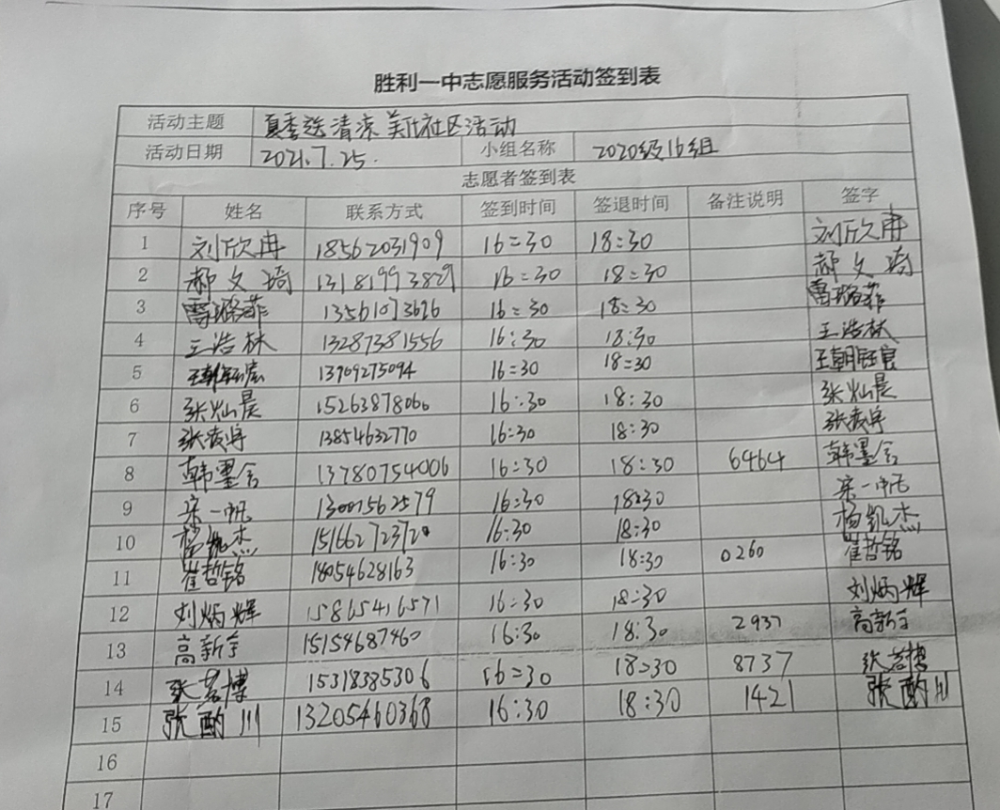 胜利一中志愿服务活动签到表
活动主题 夏季送清凉 美化社区活动
活动日期 2021.7.25. 小组名称 2020级16组
志愿者签到表
序号 姓名 联系方式 签到时间 签退时间 备注说明 签字
1 刘欣冉 18562031909 16:30 18:30 刘欣冉
2 郝文琦 13181993829 16:30 18:30 郝文琦
3 雷璐菲 13561073626 16:30 18:30 雷璐菲
4 王浩林 13287381556 16:30 18:30 王浩林
5 13909275094 16:30 18:30
6 张灿晨 15263878066 16:30 18:30 张灿晨
7 13854632770 16:30 18:30
8 韩墨含 13780754006 16:30 18:30 6464 韩墨含
9 宋一帆 13001562579 16:30 18:30 宋一帆
10 杨凯杰 15166272372 16:30 18:30 杨凯杰
11 崔哲铭 18054628163 16:30 18:30 0260 崔哲铭
12 刘炳辉 15865416571 16:30 18:30 刘炳辉
13 高新宇 15154687460 16:30 18:30 2937 高新宇
14 张茗博 15318385306 16:30 18:30 8737 张茗博
15 张酌川 13205460368 16:30 18:30 1421 张酌川
16
17